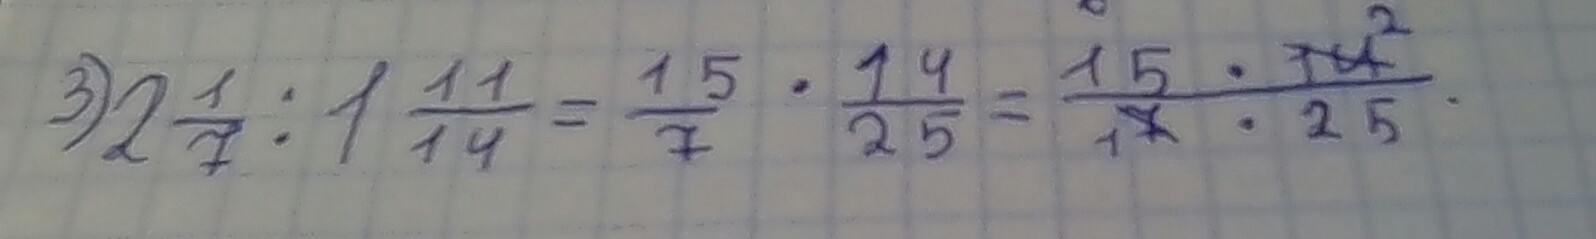 3) 2 1/7 : 1 11/14 = 15/7 · 14/25 = 15 · 14 2 / 1 7 · 25 .